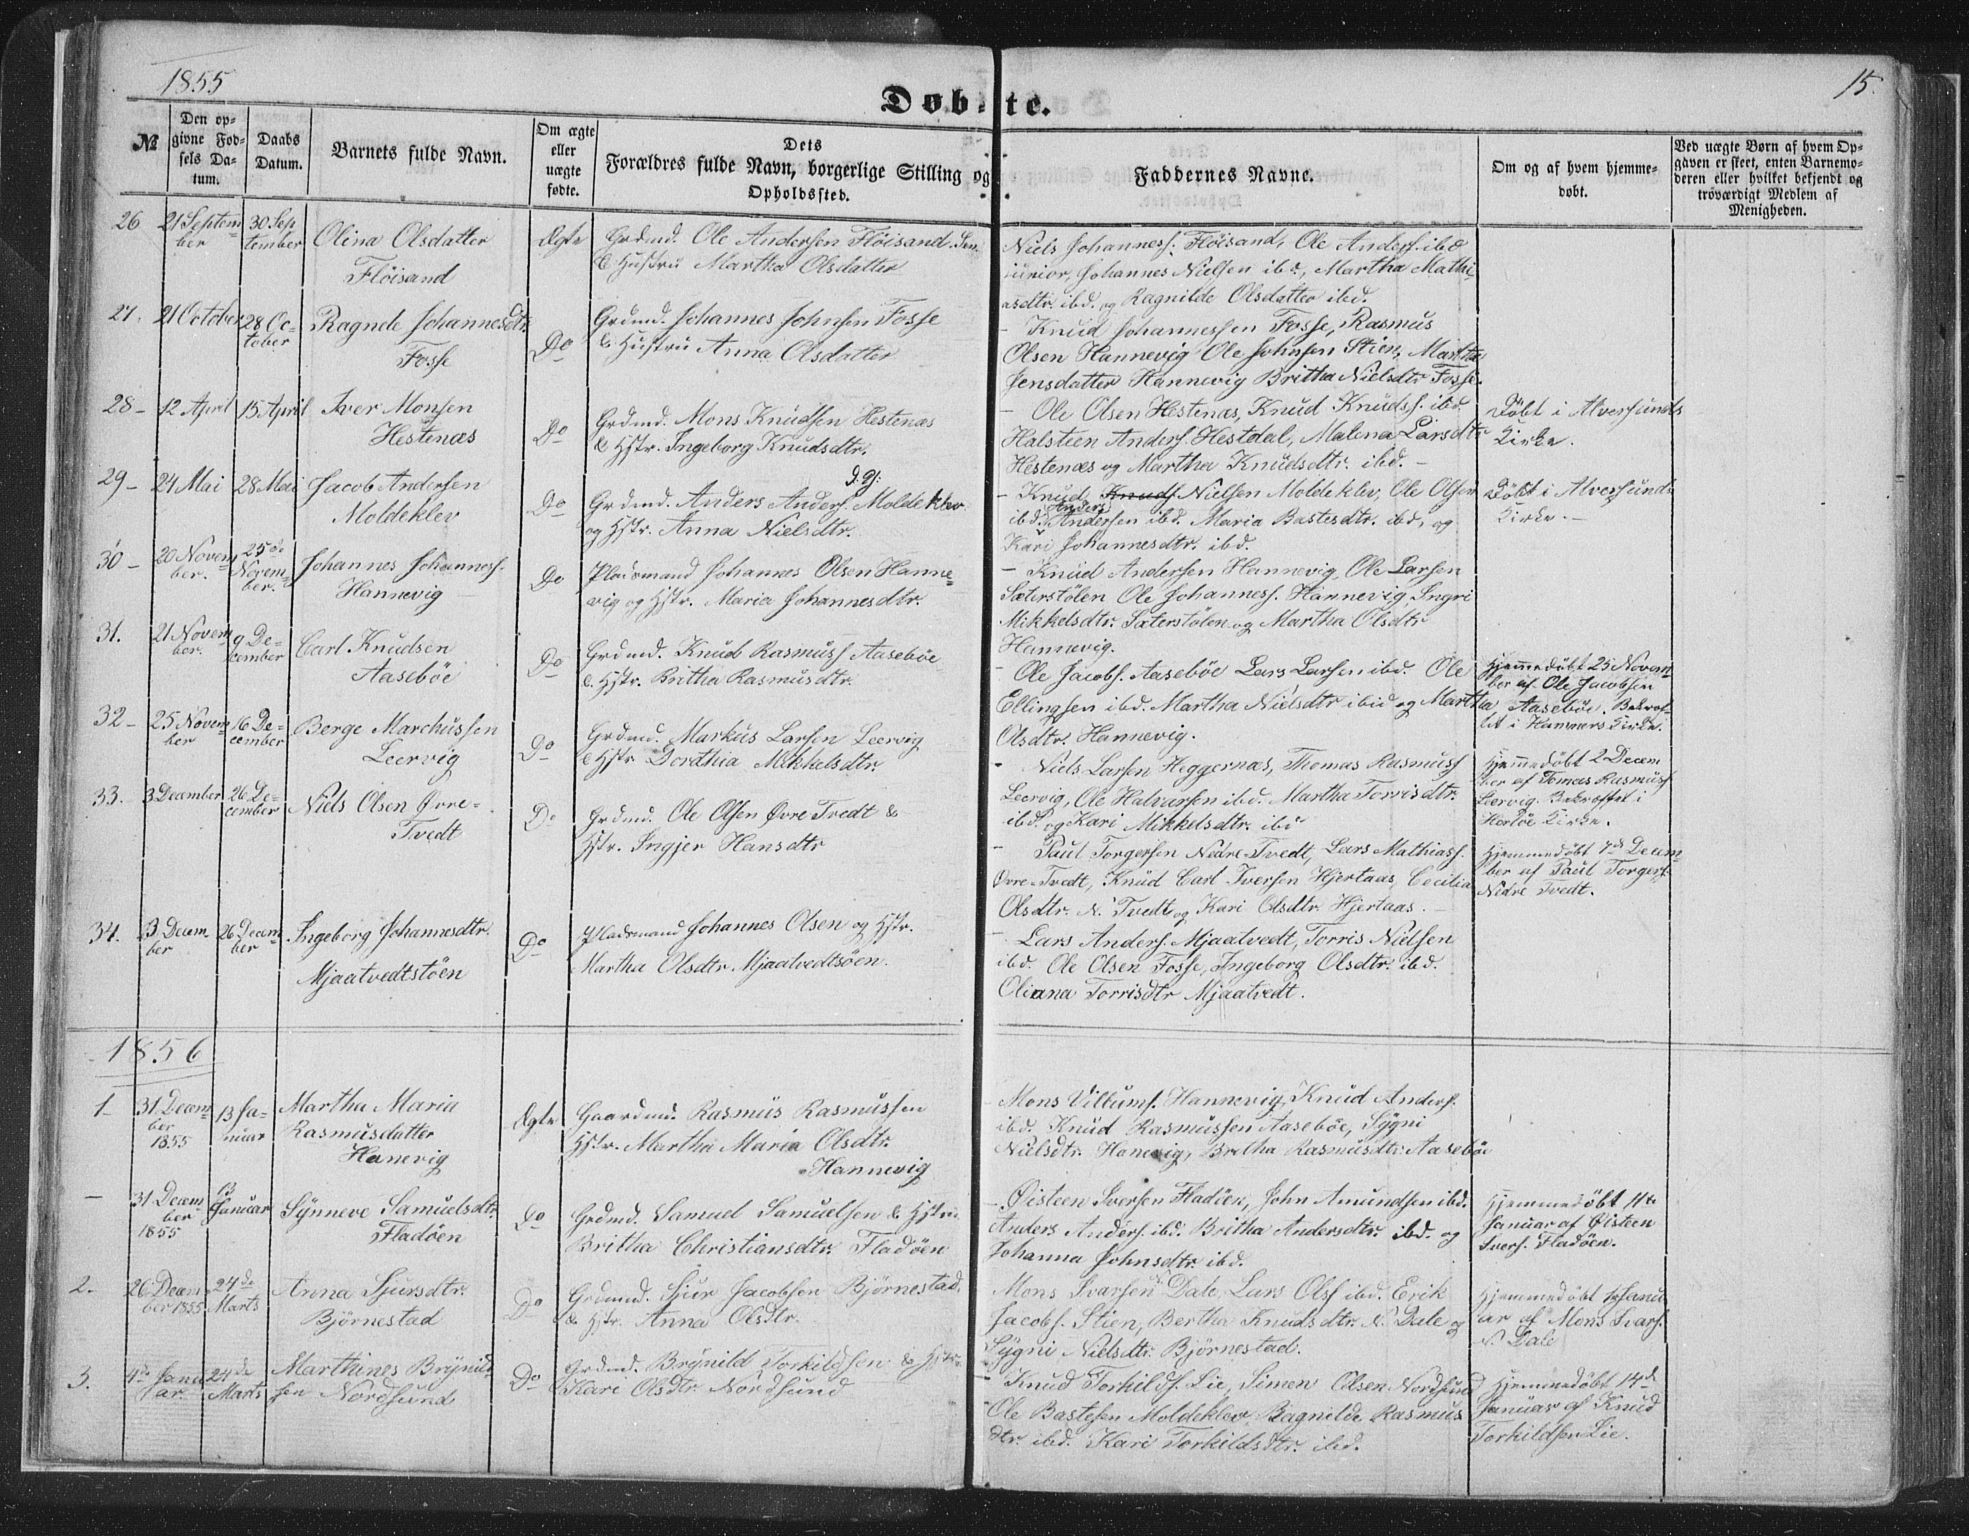 1855
15.
Døbte.
№
Den op-
givne Fød-
sels Da-
tum.
Daabs
Datum.
Barnets fulde Navn.
Om ægte
eller
uægte
fødte.
Dets
Forældres fulde Navn, borgerlige Stilling og
Opholdssted.
Faddernes Navne.
Om og af hvem hjemme-
døbt.
Ved uægte Børn af hvem Op-
gaven er skeet, enten Barnemo-
deren eller hvilket bekjendt og
troværdigt Medlem af
Menigheden.
26
21 Septem-
ber
30 Sep
tember
Olina Olsdatter
Flöisand
Ægte
Grdmd. Ole Andersen Flöisand Sen.
& Hustru Martha Olsdatter
Niels Johanness. Flöisand, Ole Anders. ibd
junior, Johannes Nielsen ibd., Martha Mathi-
asdtr. ibd. og Ragnilde Olsdatter ibd.
27.
21 October
28 Oc-
tober
Ragnele Johannesdtr.
Fosse
Do
Grdmd. Johannes Johnsen Fosse
& Hustru Anna Olsdatter
- Knud Johannessen Fosse, Rasmus
Olsen Hannevig Ole Johnsen Stien, Martha
Jensdatter Hannevig Britha Nielsdtr Fosse.
28-
12 April
15 April
Iver Monsen
Hestenæs
Do
Grdmd. Mons Knudsen Hestenæs
& Hstr. Ingeborg Knudsdtr.
- Ole Olsen Hestenæs, Knud Knuds. ibd.
Halstien Anders. Hestdal, Malena Larsdtr
Hestenæs og Martha Knudsdtr. ibd. -
Döbt i Alversunds
Kirke.
29-
24 Mai
28 Mai
Jacob Andersen
Moldeklev
Do
d. y:
Grdmd. Anders Anders. Moldeklev
og Hstr. Anna Nielsdtr.
- Knud Knuds Nielsen Moldeklev, Ole Olsen
ibd. Anders Andersen ibd. Maria Bastesdtr. ibd, og
Kari Johannesdtr. ibd.
Döbt i Alversunds
Kirke. -
30-
20 Novem-
ber.
25de
Novem-
ber.
Johannes Johanness.
Hannevig
Do
Pladsmand Johannes Olsen Hanne-
vig og Hstr. Maria Johannesdtr.
- Knud Andersen Hannevig, Ole Larsen
Sæterstölen Ole Johanness. Hannevig, Ingri
Mikkelsdtr. Sæterstölen og Martha Olsdtr
Hannevig.
31.
21 Novem-
ber.
9 De-
cember
Carl Knudsen
Aaseböe
Do
Grdmd. Knud Rasmuss Aaseböe
& Hstr. Britha Rasmusdtr.
- Ole Jacobs. Aaseböe Lars Larsen ibd. Ole
Ellingsen ibd. Martha Nielsdtr ibid og Martha
Olsdtr. Hannevig.
Hjemmedöbt 25 Novem-
ber af Ole Jacobsen
Aaseböe. Bekræf-
tet i Hammers Kirke.
32-
25 Novem-
ber
16 De-
cember
Berge Marchussen
Leervig
Do
Grdmd. Markus Larsen Leervig
& Hstr Dorthia Mikkelsdtr.
- Niels Larsen Heggernæs, Thomas Rasmuss
Leervig, Ole Halvarsen ibd. Martha Torrisdtr.
ibd. og Kari Mikkelsdtr. ibd
Hjemmedöbt 2 Decem
ber af Tomas Rasmuss
Leervig. Bekræftet i
Herlöe Kirke.
33.
3 December
26 De-
cember
Niels Olsen Øvre-
Tvedt
Do
Grdmd. Ole Olsen Øvre Tvedt &
Hstr. Ingjer Hansdtr
- Paul Torgersen Nedre Tvedt, Lars Mathiass.
Øvre-Tvedt, Knud Carl Iversen Hjertaas, Cecilia
Olsdtr. N. Tvedt og Kari Olsdtr. Hjertaas. -
Hjemmedöbt 7de Decem-
ber af Paul Torgers.
Nedre Tvedt.
34.
3 Decem-
ber
26 Decem-
ber
Ingeborg Johannesdtr.
Mjaatvedtstöen
Do
Pladsmand Johannes Olsen og Hstr.
Martha Olsdtr. Mjaatvedtsöen.
- Lars Anders. Mjaatvedt, Torris Nielsen
ibd. Ole Olsen Fosse, Ingeborg Olsdtr. ibd.
Oliana Torrisdtr Mjaatvedt.
1856
1-
31 Decem-
ber
1855
13 Ja-
nuar
Martha Maria
Rasmusdatter
Hanevig
Ægte
Gaardmd. Rasmus Rasmussen
Hstr. Martha Maria Olsdtr.
Hannevig
- Mons Villums. Hannevig, Knud Anders.
ibd. Knud Rasmussen Aaseböe, Sygni
Nielsdtr. Hanevig, Britha Rasmusdtr. Aaseböe
-
31 Decem-
ber
1855
13
Januar
Synneve Samuelsdtr.
Fladöen
Do
Grdmd. Samuel Samuelsen & Hstr.
Britha Christiansdtr. Fladöen
- Øisteen Iversen Fladöen, John Amundsen ibd.
Anders Anders. ibd. Britha Andersdtr. ibd. og
Johanna Johnsdtr ibd.
Hjemmedöbt 11te
Januar af Øisteen
Ivers. Fladöen.
2.
26 Decem
ber 1855
24de
Marts
Anna Sjursdtr.
Björnestad
Do
Grdmd. Sjur Jacobsen Björnestad
& Hstr. Anna Olsdtr.
Mons Ivarsen N. Dale, Lars Ols ibd. Erik
Jacobs. Stien, Bertha Knudsdtr. N. Dale og
Sygni Nielsdtr. Björnestad.
Hjemmedöbt Janu
ar af Mons Ivars.
N. Dale
3.
4de Janu
ar
24de
Marts
Marthines Brynild-
sen Nordsund
Do
Grdmd. Brynild Torkildsen & Hstr.
Kari Olsdtr Nordsund
- Knud Torkilds. Lie, Simen Olsen Nordsund
Ole Bastesen Moldeklev, Ragnilde Rasmus
dtr. ibd. Kari Torkildsdtr. ibd.
Hjemmedöbt 14de
Januar af Knud
Torkildsen Lie.